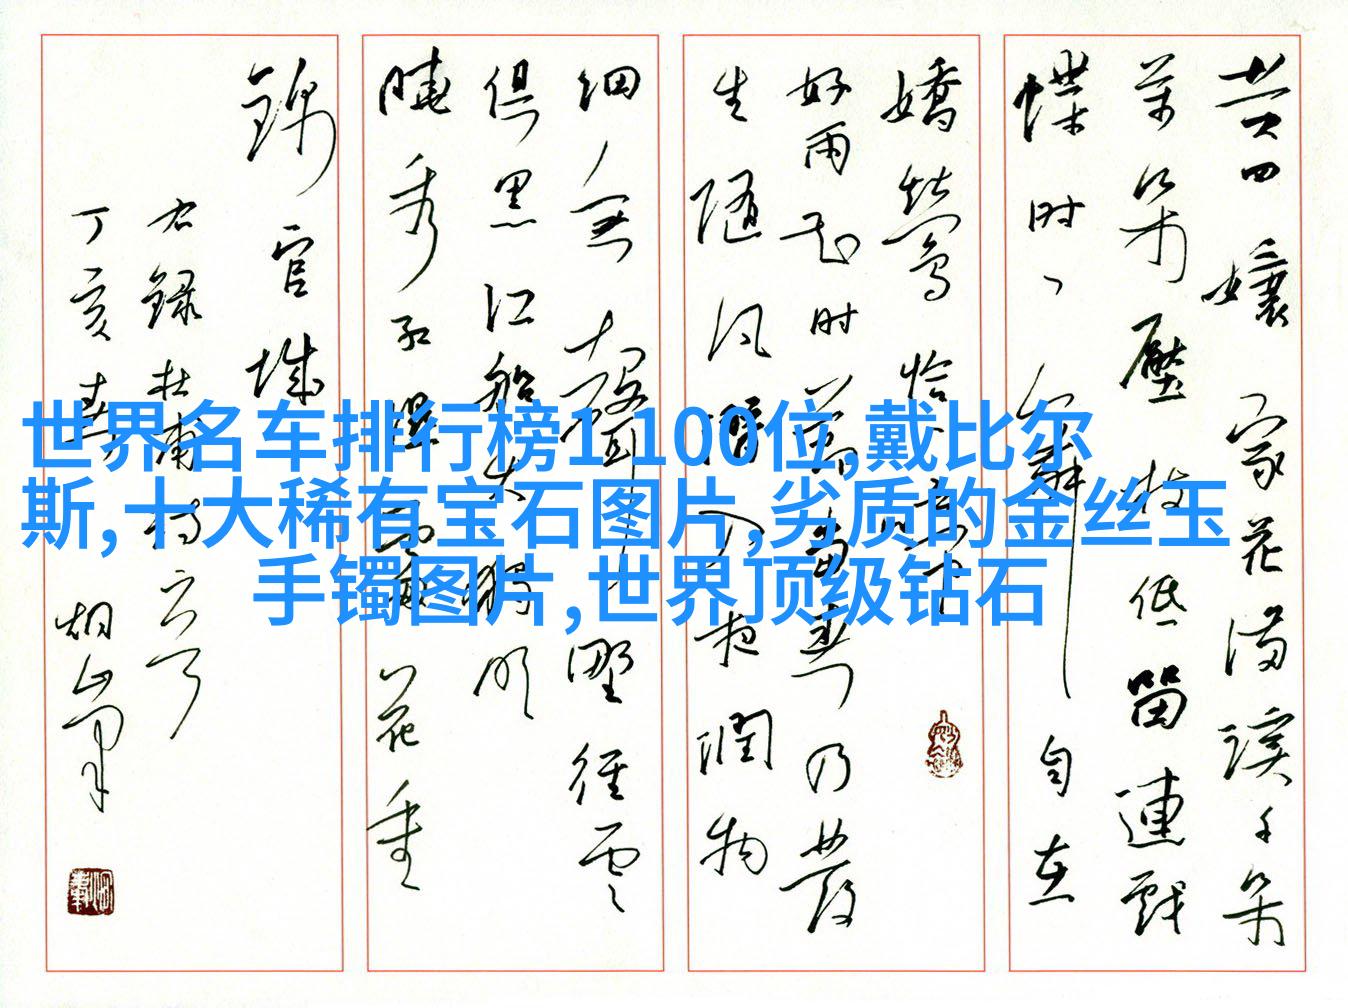 世界名车排行榜1100位,戴比尔
斯,十大稀有宝石图片,劣质的金丝玉
手镯图片,世界顶级钻石
黄四孃家花满溪千朵
萬朵壓枝低留連戏
蝶时丶舞自在
嬌莺恰
好雨知时当春乃發
生随风潜入夜润物
细无声野径云
俱黑江船火独明
晓看红湿花重
锦官城
右録杜甫诗
丁亥春